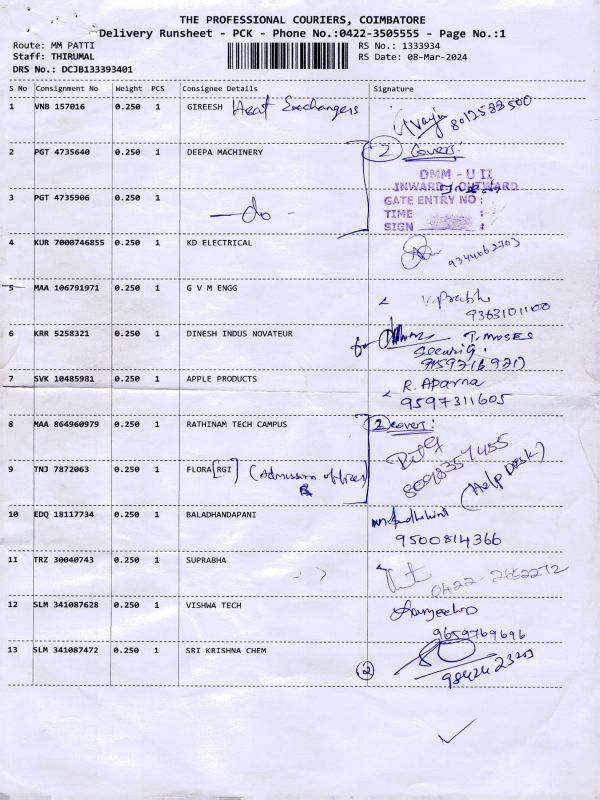 THE PROFESSIONAL COURIERS, COIMBATORE
Delivery Runsheet - PCK - Phone No.:0422-3505555 - Page No.:1
Route: MM PATTI
RS No.: 1333934
Staff: THIRUMAL
RS Date: 08-Mar-2024
DRS No.: DCJB133393401
S No Consignment No Weight PCS Consignee Details Signature
1 VNB 157016 0.250 1 GIREESH Heat Exchangers
8012588500
2 PGT 4735640 0.250 1 DEEPA MACHINERY 2 Covers:
DMM - U II
INWARD / OUTWARD
3 PGT 4735906 0.250 1 - do -
GATE ENTRY NO :
TIME :
SIGN :
4 KUR 7000746855 1 KD ELECTRICAL
9344062703
5 MAA 106791971 0.250 1 G V M ENGG V. Prabhu
9363101100
6 KRR 5258321 0.250 1 DINESH INDUS NOVATEUR for T. MOSES
7 SVK 10485981 0.250 1 APPLE PRODUCTS R. Aparna
9597311605
8 MAA 864960979 0.250 1 RATHINAM TECH CAMPUS 2 covers:
9 TNJ 7872063 0.250 1 FLORA [RGI] (Admission office)
(Help Desk)
10 EDQ 18117734 0.250 1 BALADHANDAPANI
9500814366
11 TRZ 30040743 0.250 1 SUPRABHA
0422-2662272
12 SLM 341087628 0.250 1 VISHWA TECH
9659769696
13 SLM 341087472 0.250 1 SRI KRISHNA CHEM
2